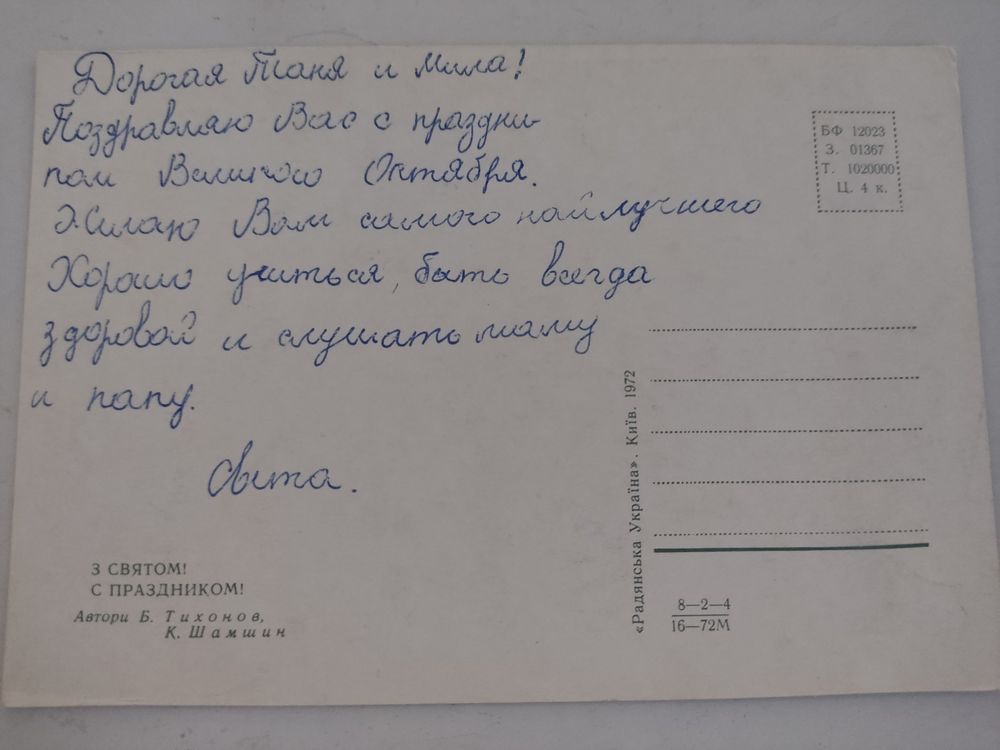 Дорогая Таня и Мила!
Поздравляю Вас с праздни-
ком Великого Октября.
Желаю Вам самого найлучшего
Хорошо учиться, быть всегда
здоровой и слушать маму
и папу.
Света.
БФ 12023
З. 01367
Т. 1020000
Ц. 4 к.
«Радянська Україна». Київ. 1972
З СВЯТОМ!
С ПРАЗДНИКОМ!
Автори Б. Тихонов,
К. Шамшин
8—2—4
16—72М